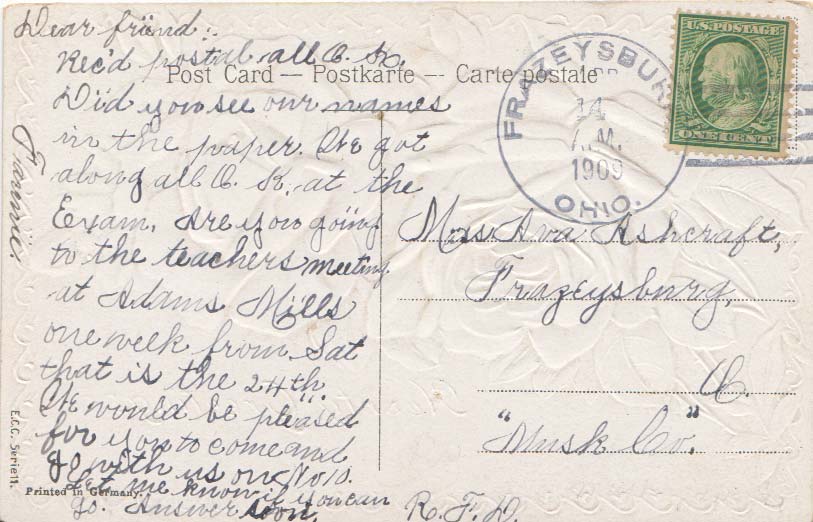 Dear friend:
Rec'd postal all O.K.
Post Card — Postkarte — Carte postale
Did you see our names
in the paper. We got
along all O.K. at the
Exam. Are you going
to the teachers meeting
at Adams Mills
one week from Sat
that is the 24th.
We would be pleased
for you to come and
go with us on No 10.
Let me know if you can
go. Answer soon.
Fannie.
E.C.C. Serie 11.
Printed in Germany.
FRAZEYSBUR
14
A.M.
1909
OHIO.
U.S. POSTAGE
ONE CENT
Ava Ashcraft,
Frazeysburg,
O.
"Musk Co."
R.F.D.